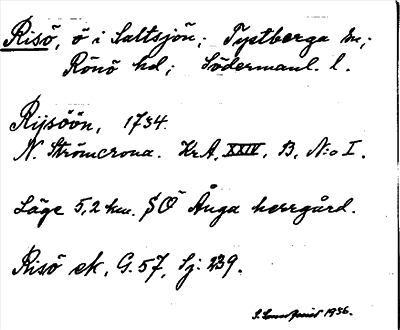 Risö, ö i Saltsjön; Tystberga sn;
Rönö hd; Södermanl. l.
Rijsöön, 1734.
N. Strömcrona. Kr.A. XXIV, B, N:o I.
Läge 5,2 km. SÖ Ånga herrgård.
Risö ek, G. 57, Sj: 239.
1936.